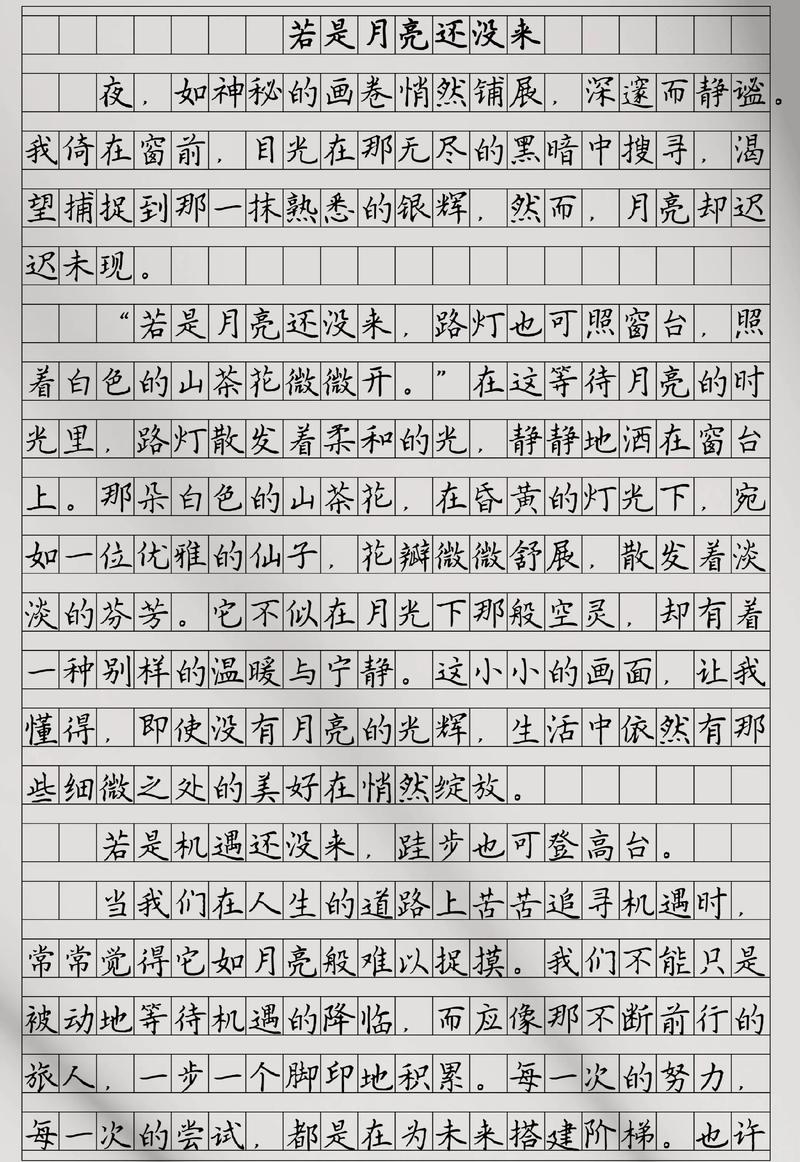 若是月亮还没来
夜，如神秘的画卷悄然铺展，深邃而静谧。
我倚在窗前，目光在那无尽的黑暗中搜寻，渴
望捕捉到那一抹熟悉的银辉，然而，月亮却迟
迟未现。
“若是月亮还没来，路灯也可照窗台，照
着白色的山茶花微微开。”在这等待月亮的时
光里，路灯散发着柔和的光，静静地洒在窗台
上。那朵白色的山茶花，在昏黄的灯光下，宛
如一位优雅的仙子，花瓣微微舒展，散发着淡
淡的芬芳。它不似在月光下那般空灵，却有着
一种别样的温暖与宁静。这小小的画面，让我
懂得，即使没有月亮的光辉，生活中依然有那
些细微之处的美好在悄然绽放。
若是机遇还没来，跬步也可登高台。
当我们在人生的道路上苦苦追寻机遇时，
常常觉得它如月亮般难以捉摸。我们不能只是
被动地等待机遇的降临，而应像那不断前行的
旅人，一步一个脚印地积累。每一次的努力，
每一次的尝试，都是在为未来搭建阶梯。也许